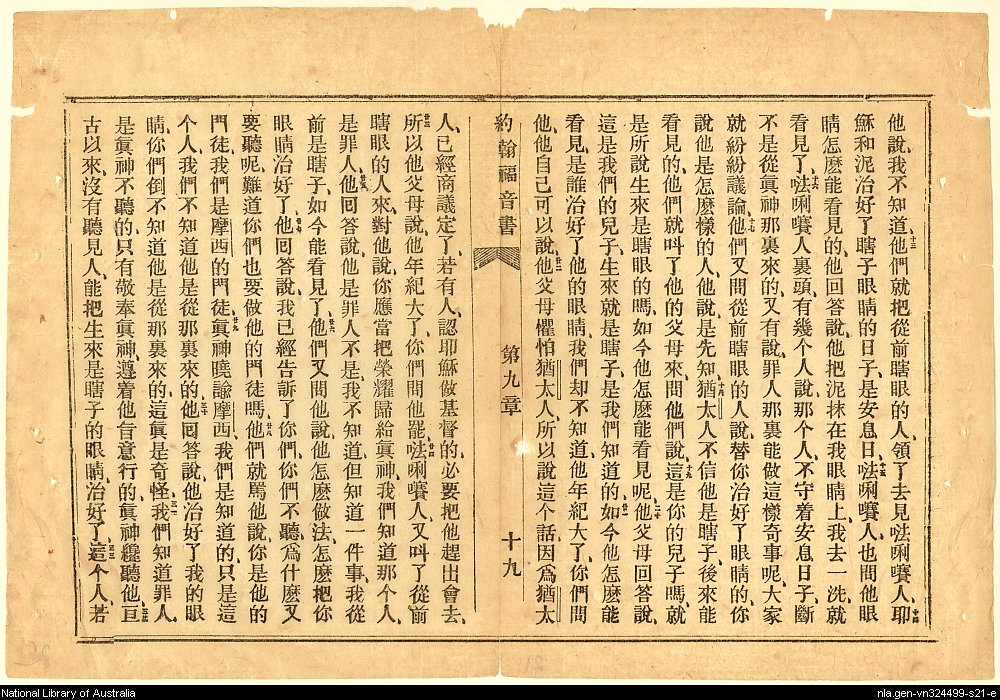 他說我不知道他們就把從前瞎眼的人、領了去見㳒唎賽人、耶
十三
十四
穌和泥治好了瞎子眼睛的日子是安息日㳒唎賽人也問他眼
十五
睛怎麽能看見的、他回答說、他把泥抹在我眼睛上、我去一洗就
看見了、㳒唎賽人裏頭有幾个人說、那个人不守着安息日子、斷
十六
不是從眞神那裏來的、又有說、罪人那裏能做這樣奇事呢、大家
就紛紛議論、他們又問從前瞎眼的人說、替你治好了眼睛的、你
十七
說他是怎麽樣的人、他說是先知、猶太人不信他是瞎子、後來能
十八
看見的、他們就叫了他的父母來、問他們說、這是你的兒子嗎、就
十九
是所說生來是瞎眼的嗎、如今他怎麽能看見呢、他父母回答說、
二十
這是我們的兒子、生來就是瞎子、是我們知道的、如今他怎麽能
廿一
看見、是誰治好了他的眼睛、我們却不知道、他年紀大了、你們問
他、他自己可以說、他父母懼怕猶太人、所以說這个話、因爲猶太
廿二
約翰福音書
第九章
十九
人、已經商議定了、若有人、認耶穌做基督的、必要把他趕出會去、
所以他父母說、他年紀大了、你們問他罷、㳒唎賽人又叫了從前
廿三
廿四
瞎眼的人來、對他說、你應當把榮耀歸給眞神、我們知道那个人、
是罪人、他回答說、他是罪人不是、我不知道、但知道一件事、我從
廿五
前是瞎子、如今能看見了、他們又問他說、他怎麽做法、怎麽把你
廿六
眼睛治好了、他回答說、我已經告訴了你們、你們不聽、爲什麽又
廿七
要聽呢、難道你們也要做他的門徒嗎、他們就罵他說、你是他的
廿八
門徒、我們是摩西的門徒、眞神曉諭摩西、我們是知道的、只是這
廿九
个人、我們不知道他是從那裏來的、他囘答說、他治好了我的眼
三十
睛、你們倒不知道他是從那裏來的、這眞是奇怪、我們知道罪人、
三一
是眞神不聽的、只有敬奉眞神、遵着他旨意行的、眞神纔聽他、亘
三二
古以來、沒有聽見人、能把生來是瞎子的眼睛、治好了、這个人、若
三三
National Library of Australia
nla.gen-vn324499-s21-e